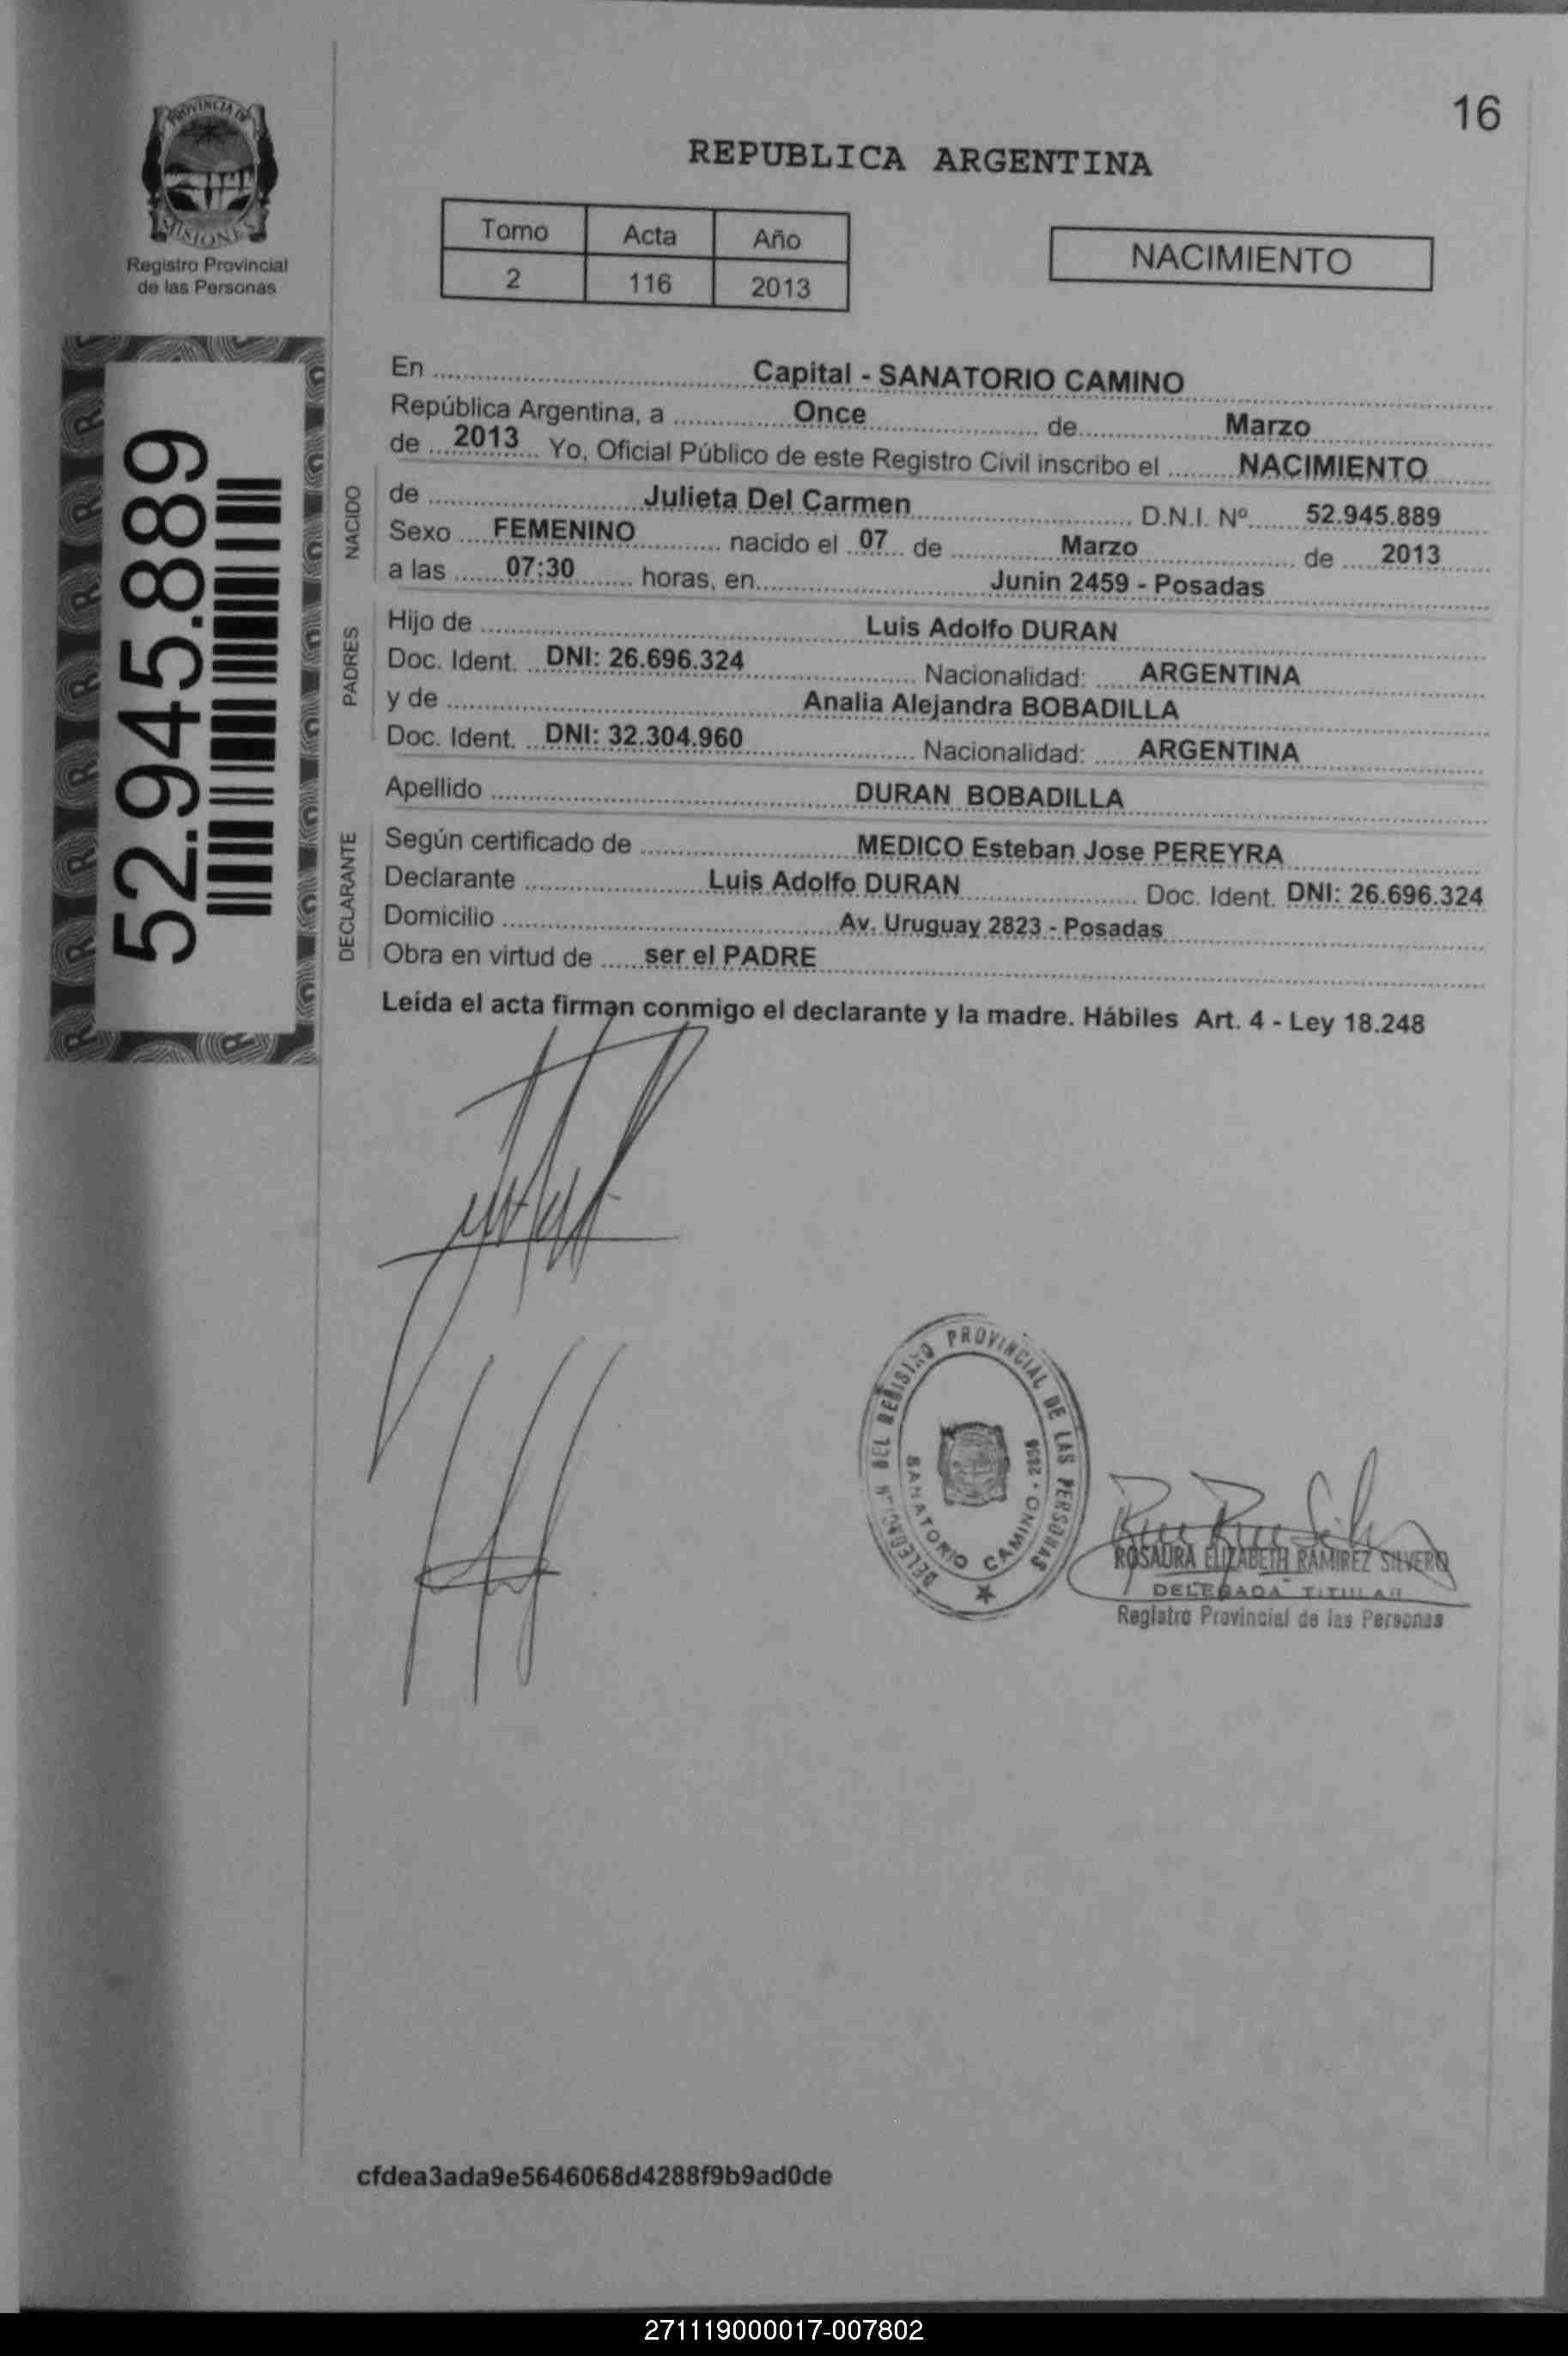 16
PROVINCIA DE
MISIONES
Registro Provincial
de las Personas
REPUBLICA ARGENTINA
Tomo Acta Año
2 116 2013
NACIMIENTO
52.945.889
En Capital - SANATORIO CAMINO
República Argentina, a Once de Marzo
de 2013 Yo, Oficial Público de este Registro Civil inscribo el NACIMIENTO
NACIDO
de Julieta Del Carmen D.N.I. Nº 52.945.889
Sexo FEMENINO nacido el 07 de Marzo de 2013
a las 07:30 horas, en Junin 2459 - Posadas
PADRES
Hijo de Luis Adolfo DURAN
Doc. Ident. DNI: 26.696.324 Nacionalidad: ARGENTINA
y de Analia Alejandra BOBADILLA
Doc. Ident. DNI: 32.304.960 Nacionalidad: ARGENTINA
Apellido DURAN BOBADILLA
DECLARANTE
Según certificado de MEDICO Esteban Jose PEREYRA
Declarante Luis Adolfo DURAN Doc. Ident. DNI: 26.696.324
Domicilio Av. Uruguay 2823 - Posadas
Obra en virtud de ser el PADRE
Leída el acta firman conmigo el declarante y la madre. Hábiles Art. 4 - Ley 18.248
DEL REGISTRO PROVINCIAL DE LAS PERSONAS
SANATORIO CAMINO
ROSAURA ELIZABETH RAMIREZ SILVERO
DELEGADA TITULAR
Registro Provincial de las Personas
cfdea3ada9e5646068d4288f9b9ad0de
271119000017-007802